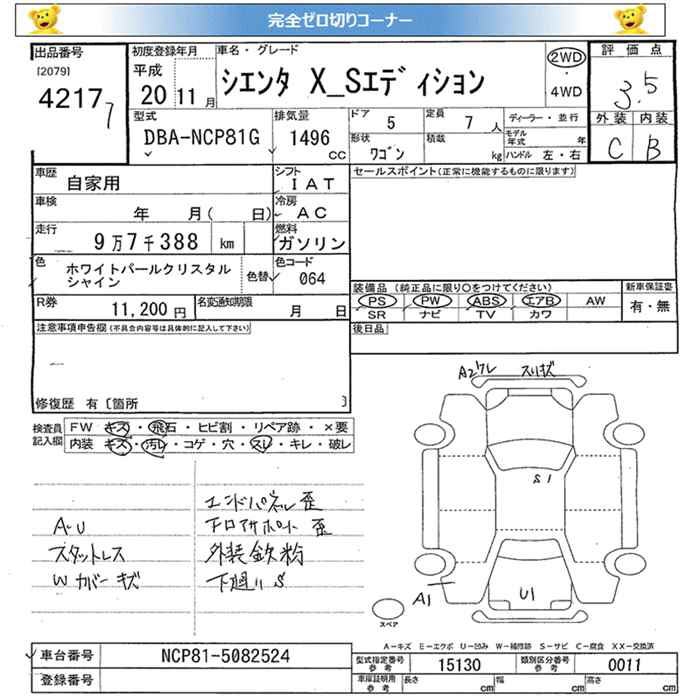 完全ゼロ切りコーナー
出品番号
[2079]
42177
初度登録年月
平成
20 11月
車名・グレード
シエンタ X_Sエディション
2WD
・
4WD
評価点
3.5
外装 内装
C B
型式
DBA-NCP81G
排気量
1496
CC
ドア
5
定員
7人
ディーラー・並行
形状
ワゴン
積載
kg
モデル年式
年
ハンドル 左・右
車歴
自家用
シフト
IAT
セールスポイント(正常に機能するものに限ります)
車検
年 月( 日)
冷房
AC
走行
9万7千388 km
燃料
ガソリン
色
ホワイトパールクリスタルシャイン
色替
色コード
064
装備品(純正品に限り○をつけてください)
新車保証書
PS PW ABS エアB AW
有・無
SR ナビ TV カワ
R券
11,200円
名変通知期限
月 日
後日品
注意事項申告欄(不具合内容等は具体的に記入して下さい)
修復歴 有〔箇所 〕
検査員記入欄
FW キズ・飛石・ヒビ割・リペア跡・×要
内装 キズ・汚レ・コゲ・穴・スレ・キレ・破レ
A・U
スタットレス
Wカバーキズ
エンドパネル歪
下ロアサポート歪
外装鉄粉
下廻りS
A2ワレ スリキズ
S1
A1
U1
スペア
A−キズ E−エクボ U−凹み W−補修跡 S−サビ C−腐食 XX−交換済
車台番号
NCP81-5082524
型式指定番号
参考
15130
類別区分番号
参考
0011
登録番号
車庫証明用
参考
長さ
cm
幅
cm
高さ
cm